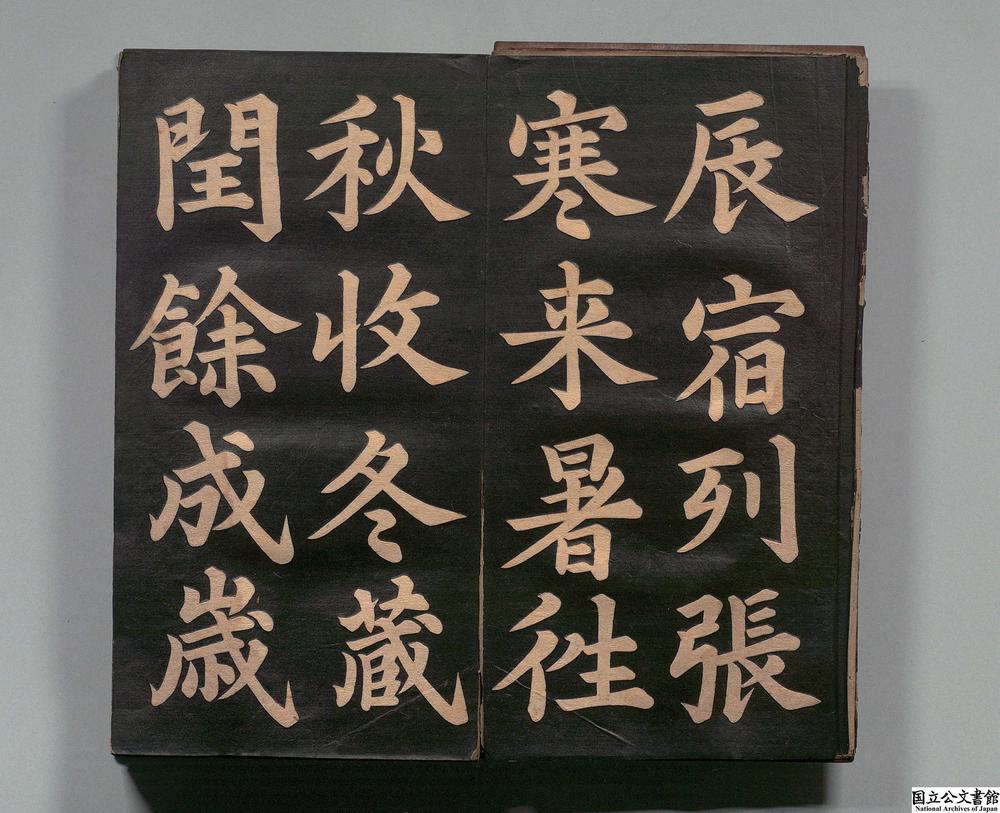 辰宿列張
寒来暑徃
秋收冬蔵
閏餘成歳
国立公文書館
National Archives of Japan